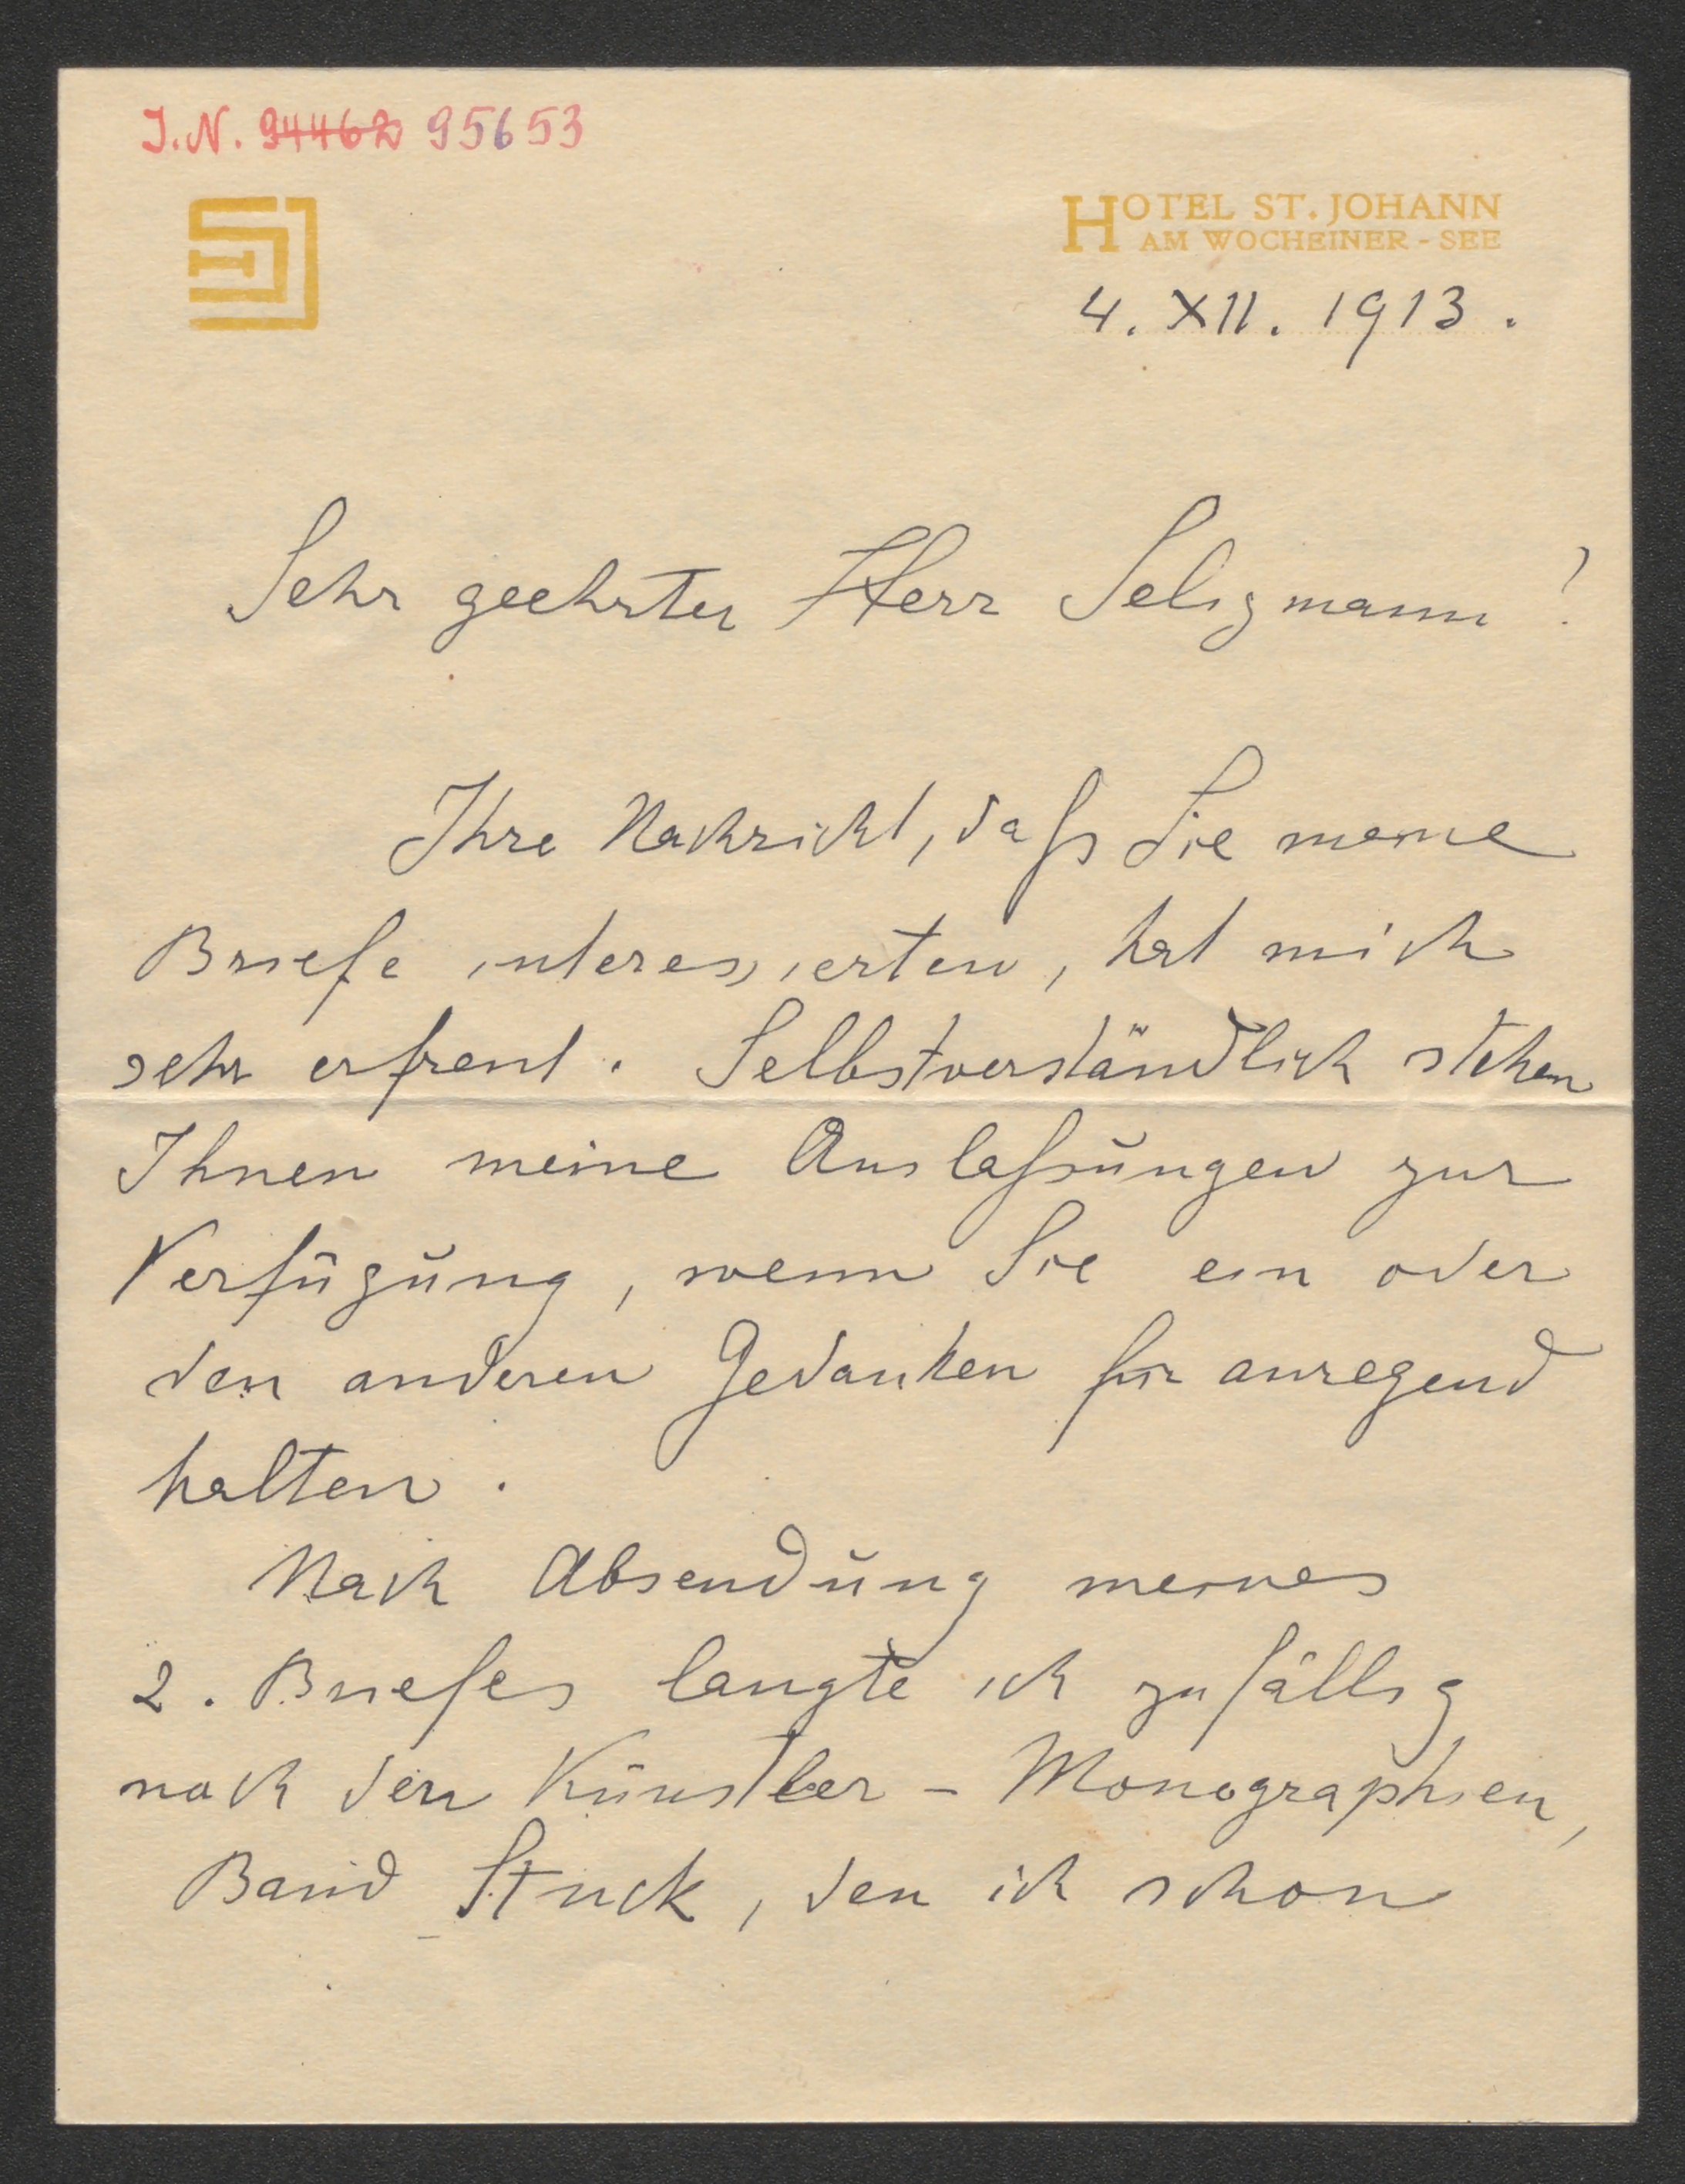 J.N. 94462 95653
HOTEL ST. JOHANN
AM WOCHEINER-SEE
4. XII. 1913.
Sehr geehrter Herr Seligmann!
Ihre Nachricht, daß Sie meine
Briefe interessierten, hat mich
sehr erfreut. Selbstverständlich stehen
Ihnen meine Auslaßungen zur
Verfügung, wenn Sie ein oder
den anderen Gedanken für anregend
halten.
Nach Absendung meines
2. Briefes langte ich zufällig
nach den Künstler-Monographien,
Band Stuck, den ich schon